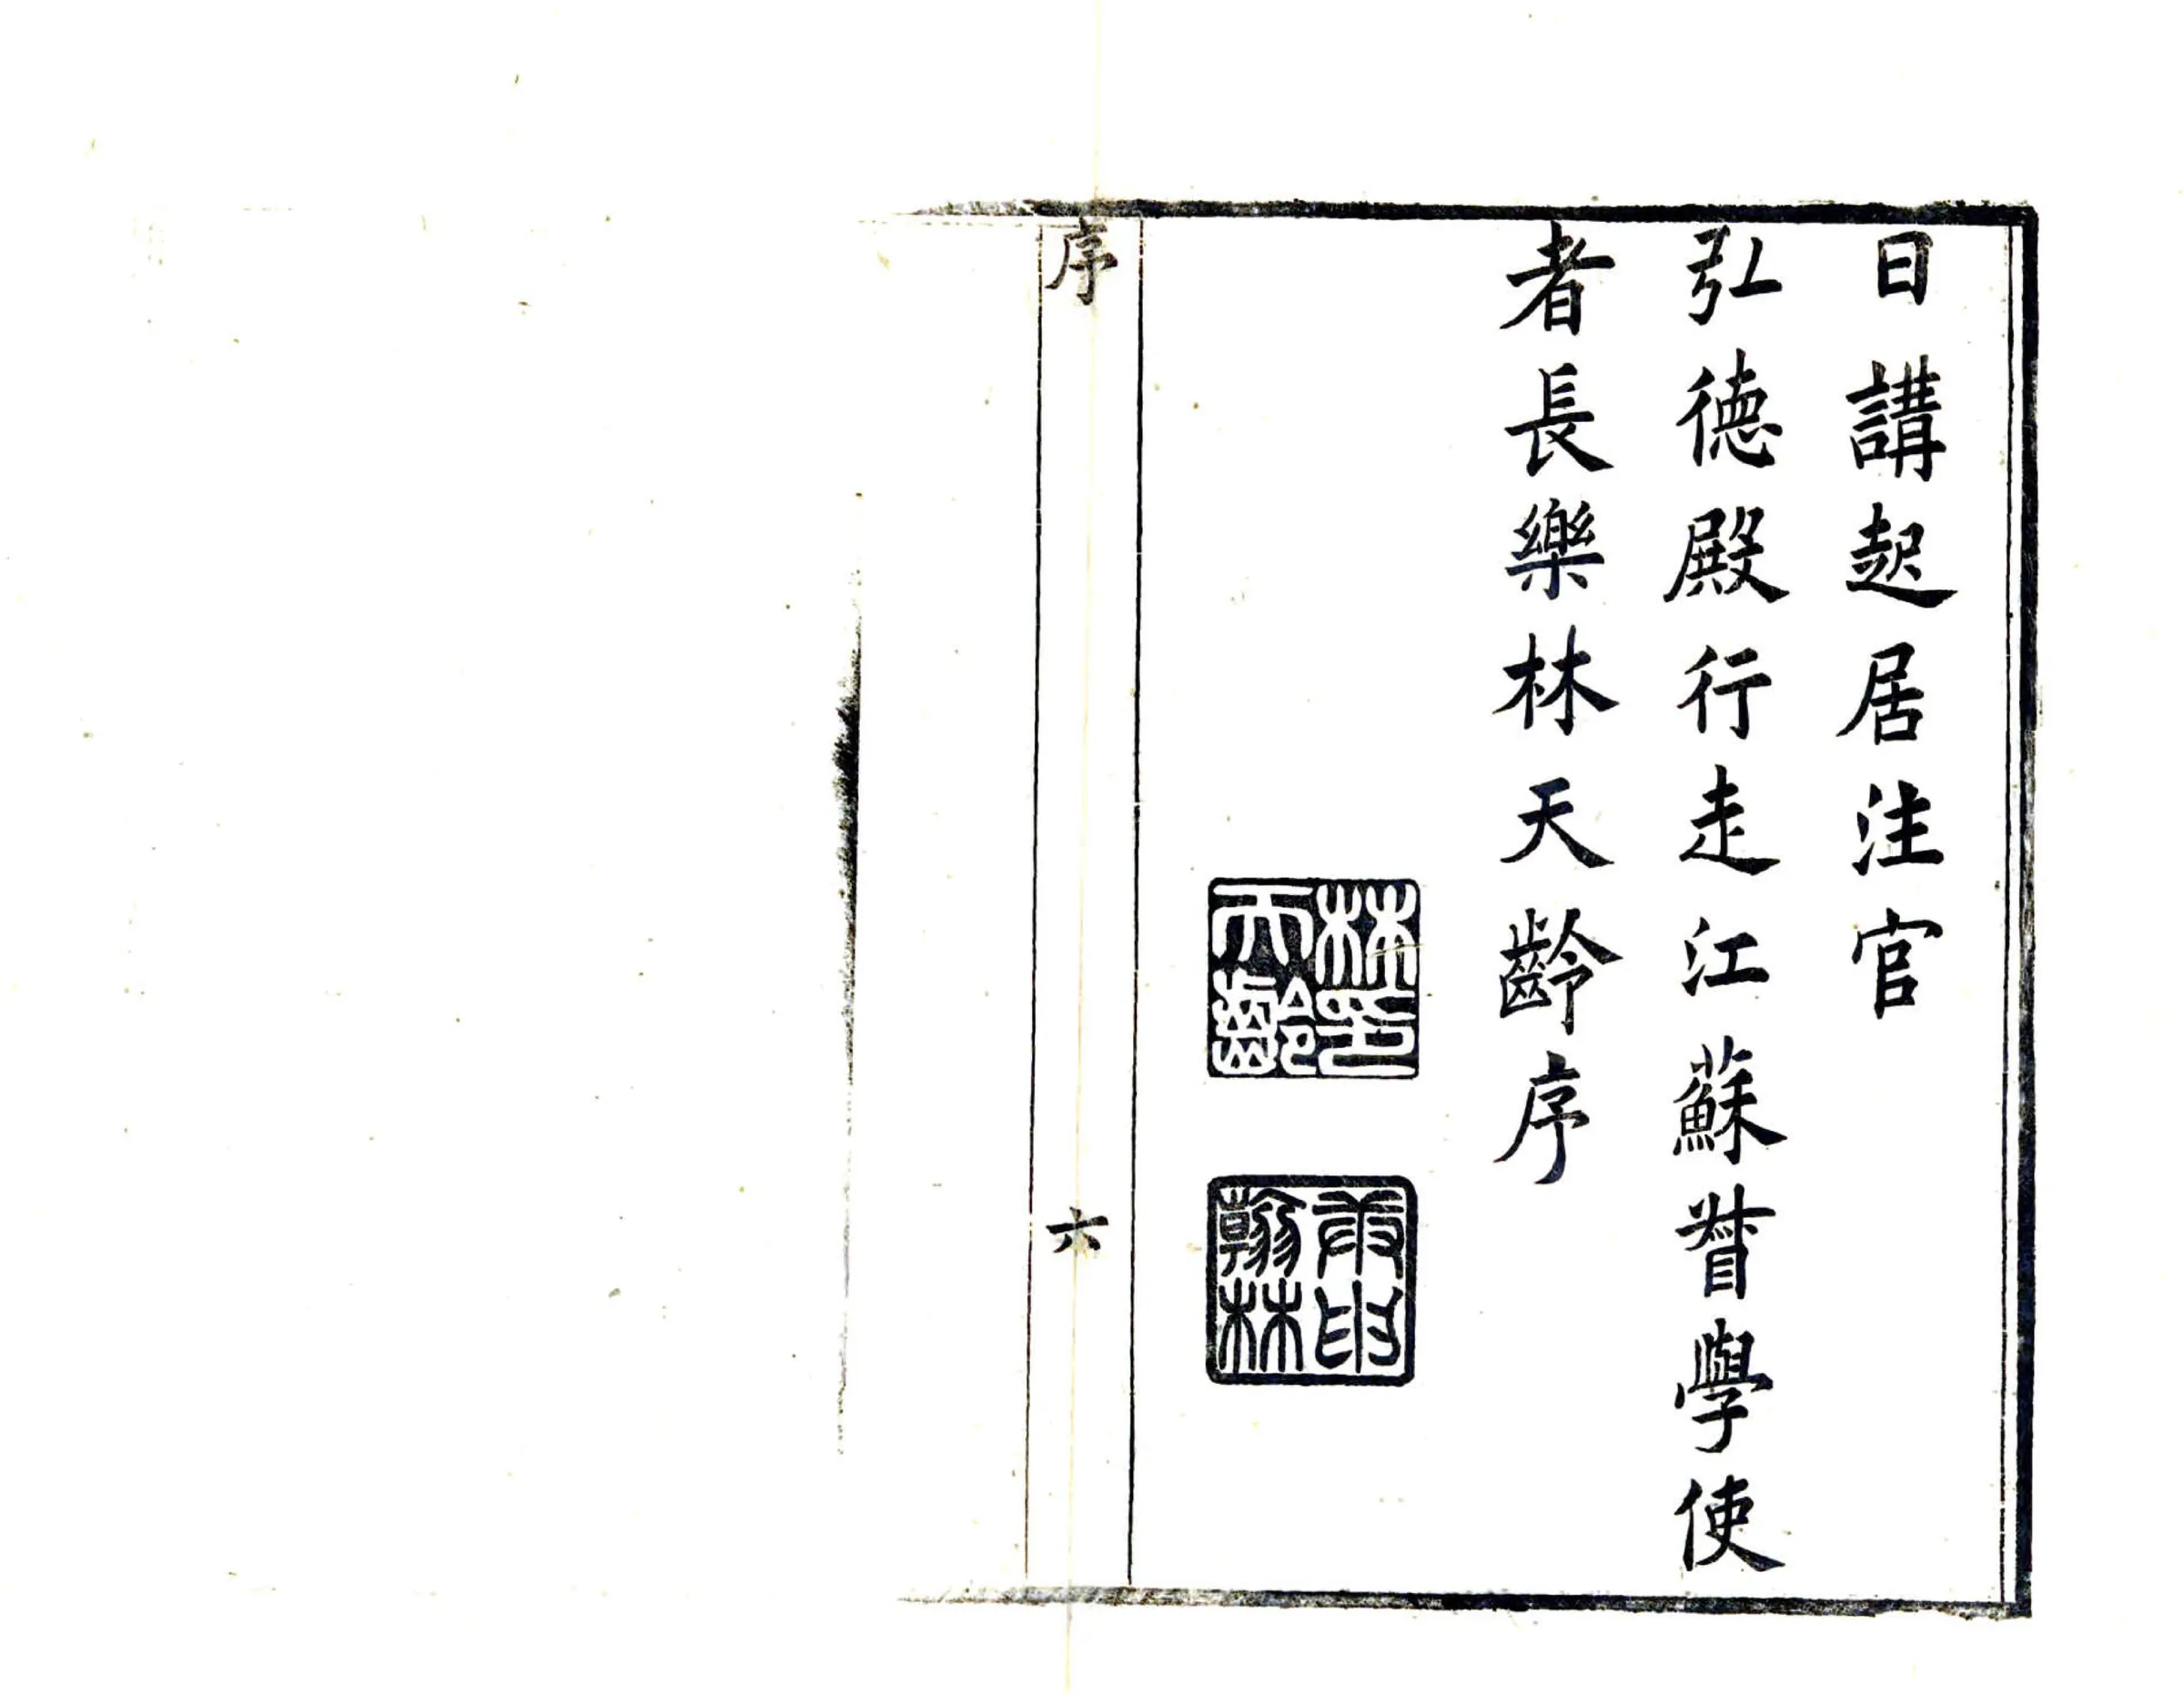 日講起居注官
弘德殿行走江蘇督學使
者長樂林天齡序
林印天齡
庚申翰林
序
六